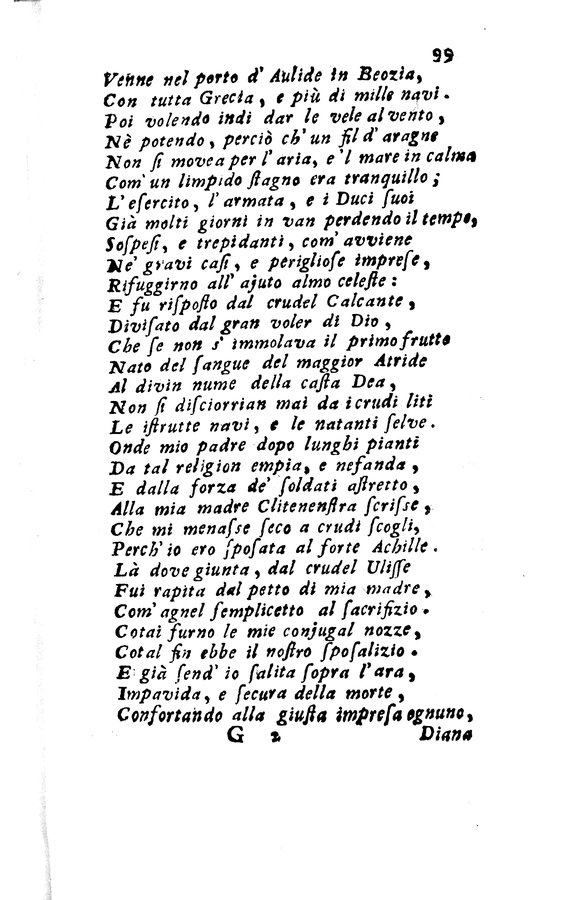 99
Venne nel porto d' Aulide in Beozia,
Con tutta Grecia, e più di mille navi.
Poi volendo indi dar le vele al vento,
Nè potendo, perciò ch' un fil d' aragne
Non ſi movea per l' aria, e 'l mare in calma
Com' un limpido ſtagno era tranquillo;
L' eſercito, l' armata, e i Duci ſuoi
Già molti giorni in van perdendo il tempo,
Soſpeſi, e trepidanti, com' avviene
Ne' gravi caſi, e periglioſe impreſe,
Rifuggirno all' ajuto almo celeſte:
E fu riſpoſto dal crudel Calcante,
Diviſato dal gran voler di Dio,
Che ſe non s' immolava il primo frutto
Nato del ſangue del maggior Atride
Al divin nume della caſta Dea,
Non ſi diſciorrian mai da i crudi liti
Le iſtrutte navi, e le natanti ſelve.
Onde mio padre dopo lunghi pianti
Da tal religion empia, e nefanda,
E dalla forza de' ſoldati aſtretto,
Alla mia madre Clitenenſtra ſcriſſe,
Che mi menaſse ſeco a crudi ſcogli,
Perch' io ero ſpoſata al forte Achille.
Là dove giunta, dal crudel Uliſſe
Fui rapita dal petto di mia madre,
Com' agnel ſemplicetto al ſacrifizio.
Cotai furno le mie conjugal nozze,
Cotal fin ebbe il noſtro ſpoſalizio.
E già ſend' io ſalita ſopra l' ara,
Impavida, e ſecura della morte,
Confortando alla giuſta impreſa ognuno,
G 2 Diana